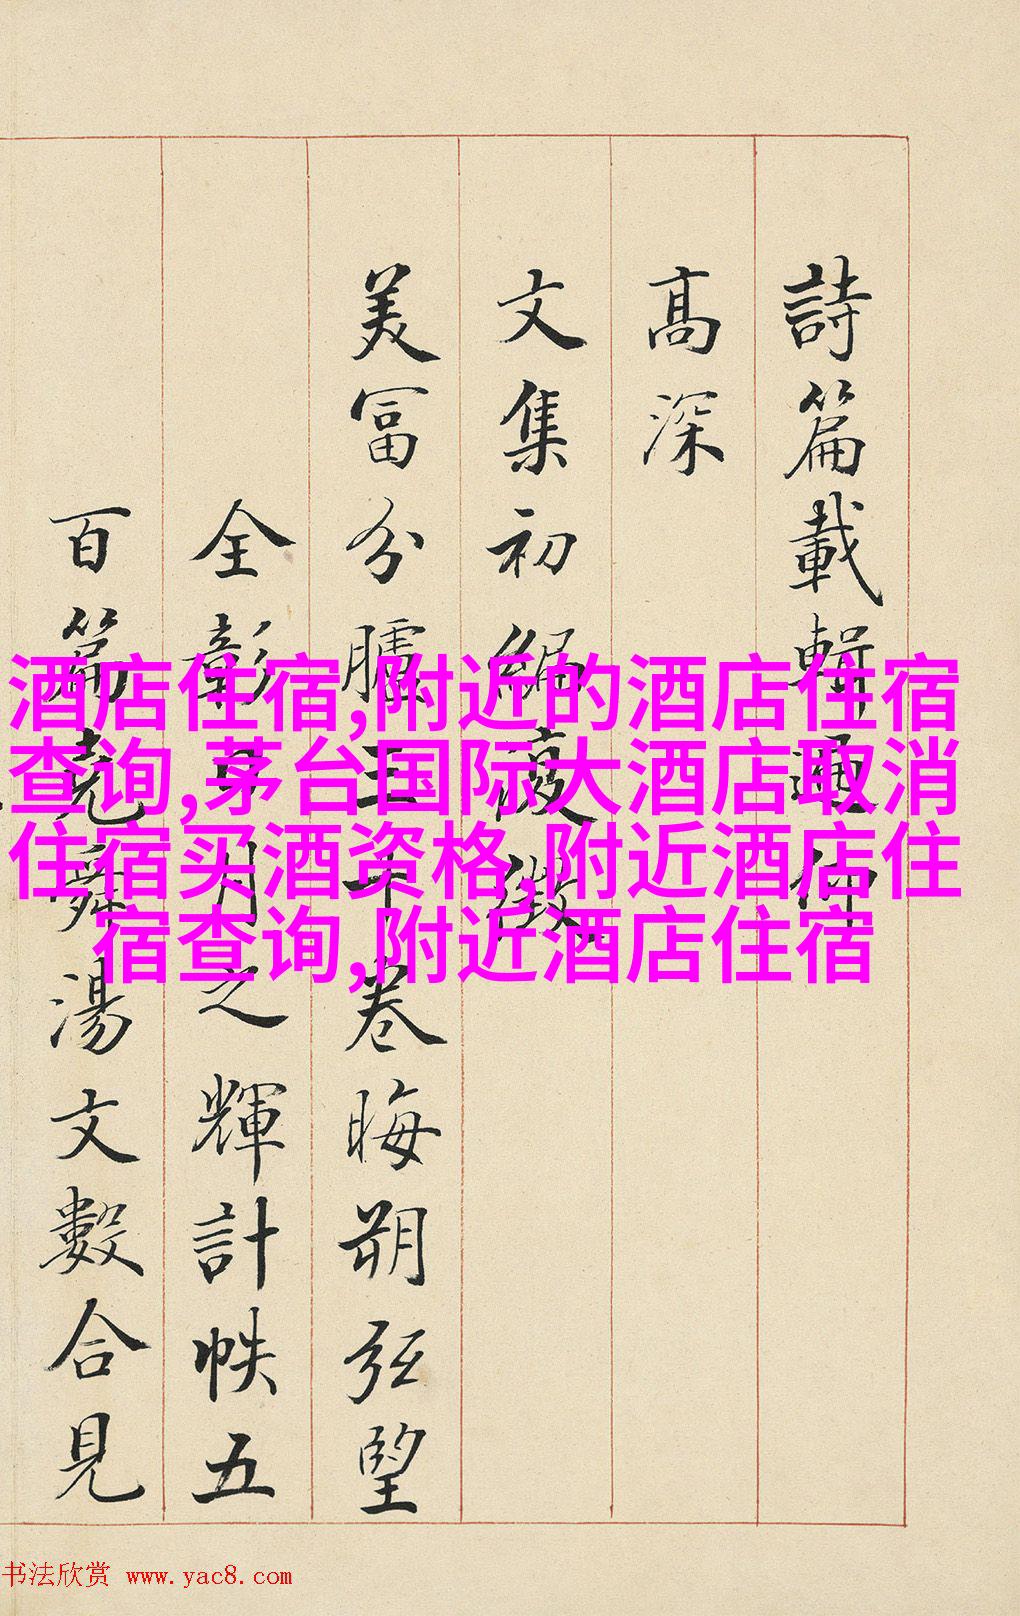 詩篇載輯通仰
高深
文集初編復徵
美富分臚三十卷晦朔弦望
全彰日月之輝計帙五
百篇堯舜湯文數合見
酒店住宿,附近的酒店住宿
查询,茅台国际大酒店取消
住宿买酒资格,附近酒店住
宿查询,附近酒店住宿
书法欣赏 www.yac8.com